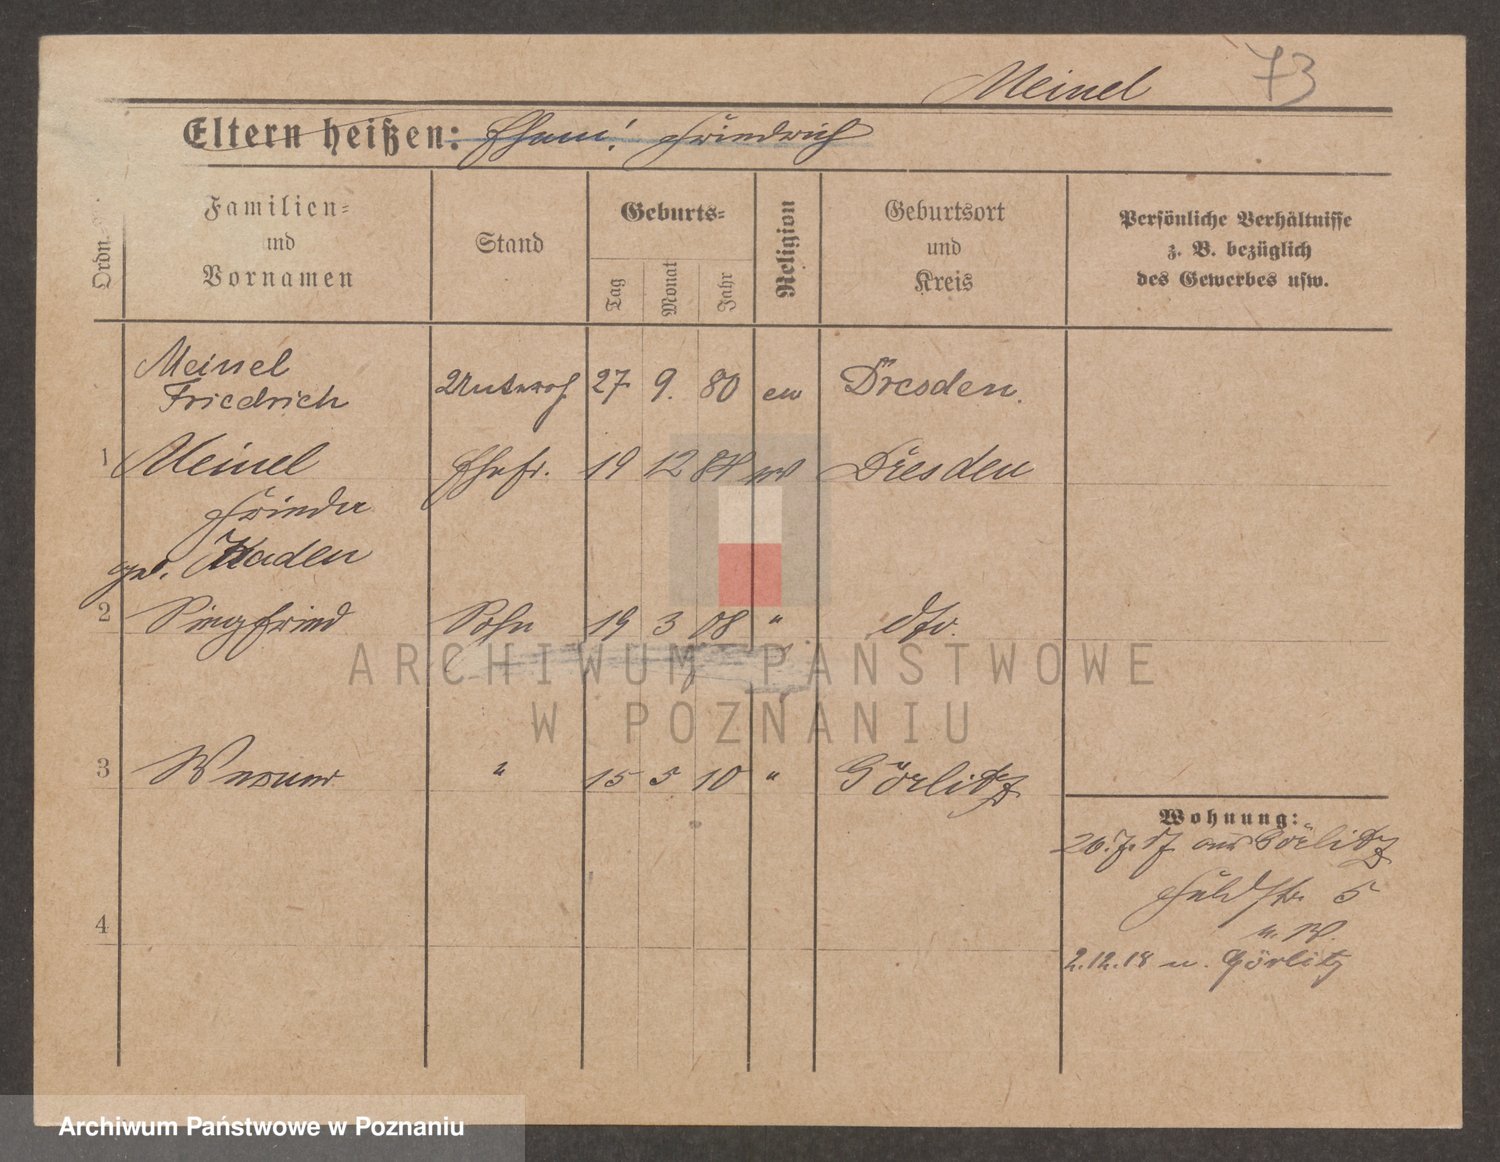 Meinel 73
Eltern heißen: Ehem! Friedrich
Ordn.
Familien-
und
Vornamen
Stand
Geburts-
Tag
Monat
Jahr
Religion
Geburtsort
und
Kreis
Persönliche Verhältnisse
z. B. bezüglich
des Gewerbes usw.
Meinel
Friedrich
27 9. 80 ev Dresden.
1 Meinel Ehefr. 19 12 ev Dresden
geb. Kaden
2 Siegfried Sohn 19 3 08 " dto.
3 Werner " 15 5 10 " Görlitz
Wohnung:
26.7.17 aus Görlitz
5
2.12.18 n. Görlitz
4
ARCHIWUM PAŃSTWOWE
W POZNANIU
Archiwum Państwowe w Poznaniu